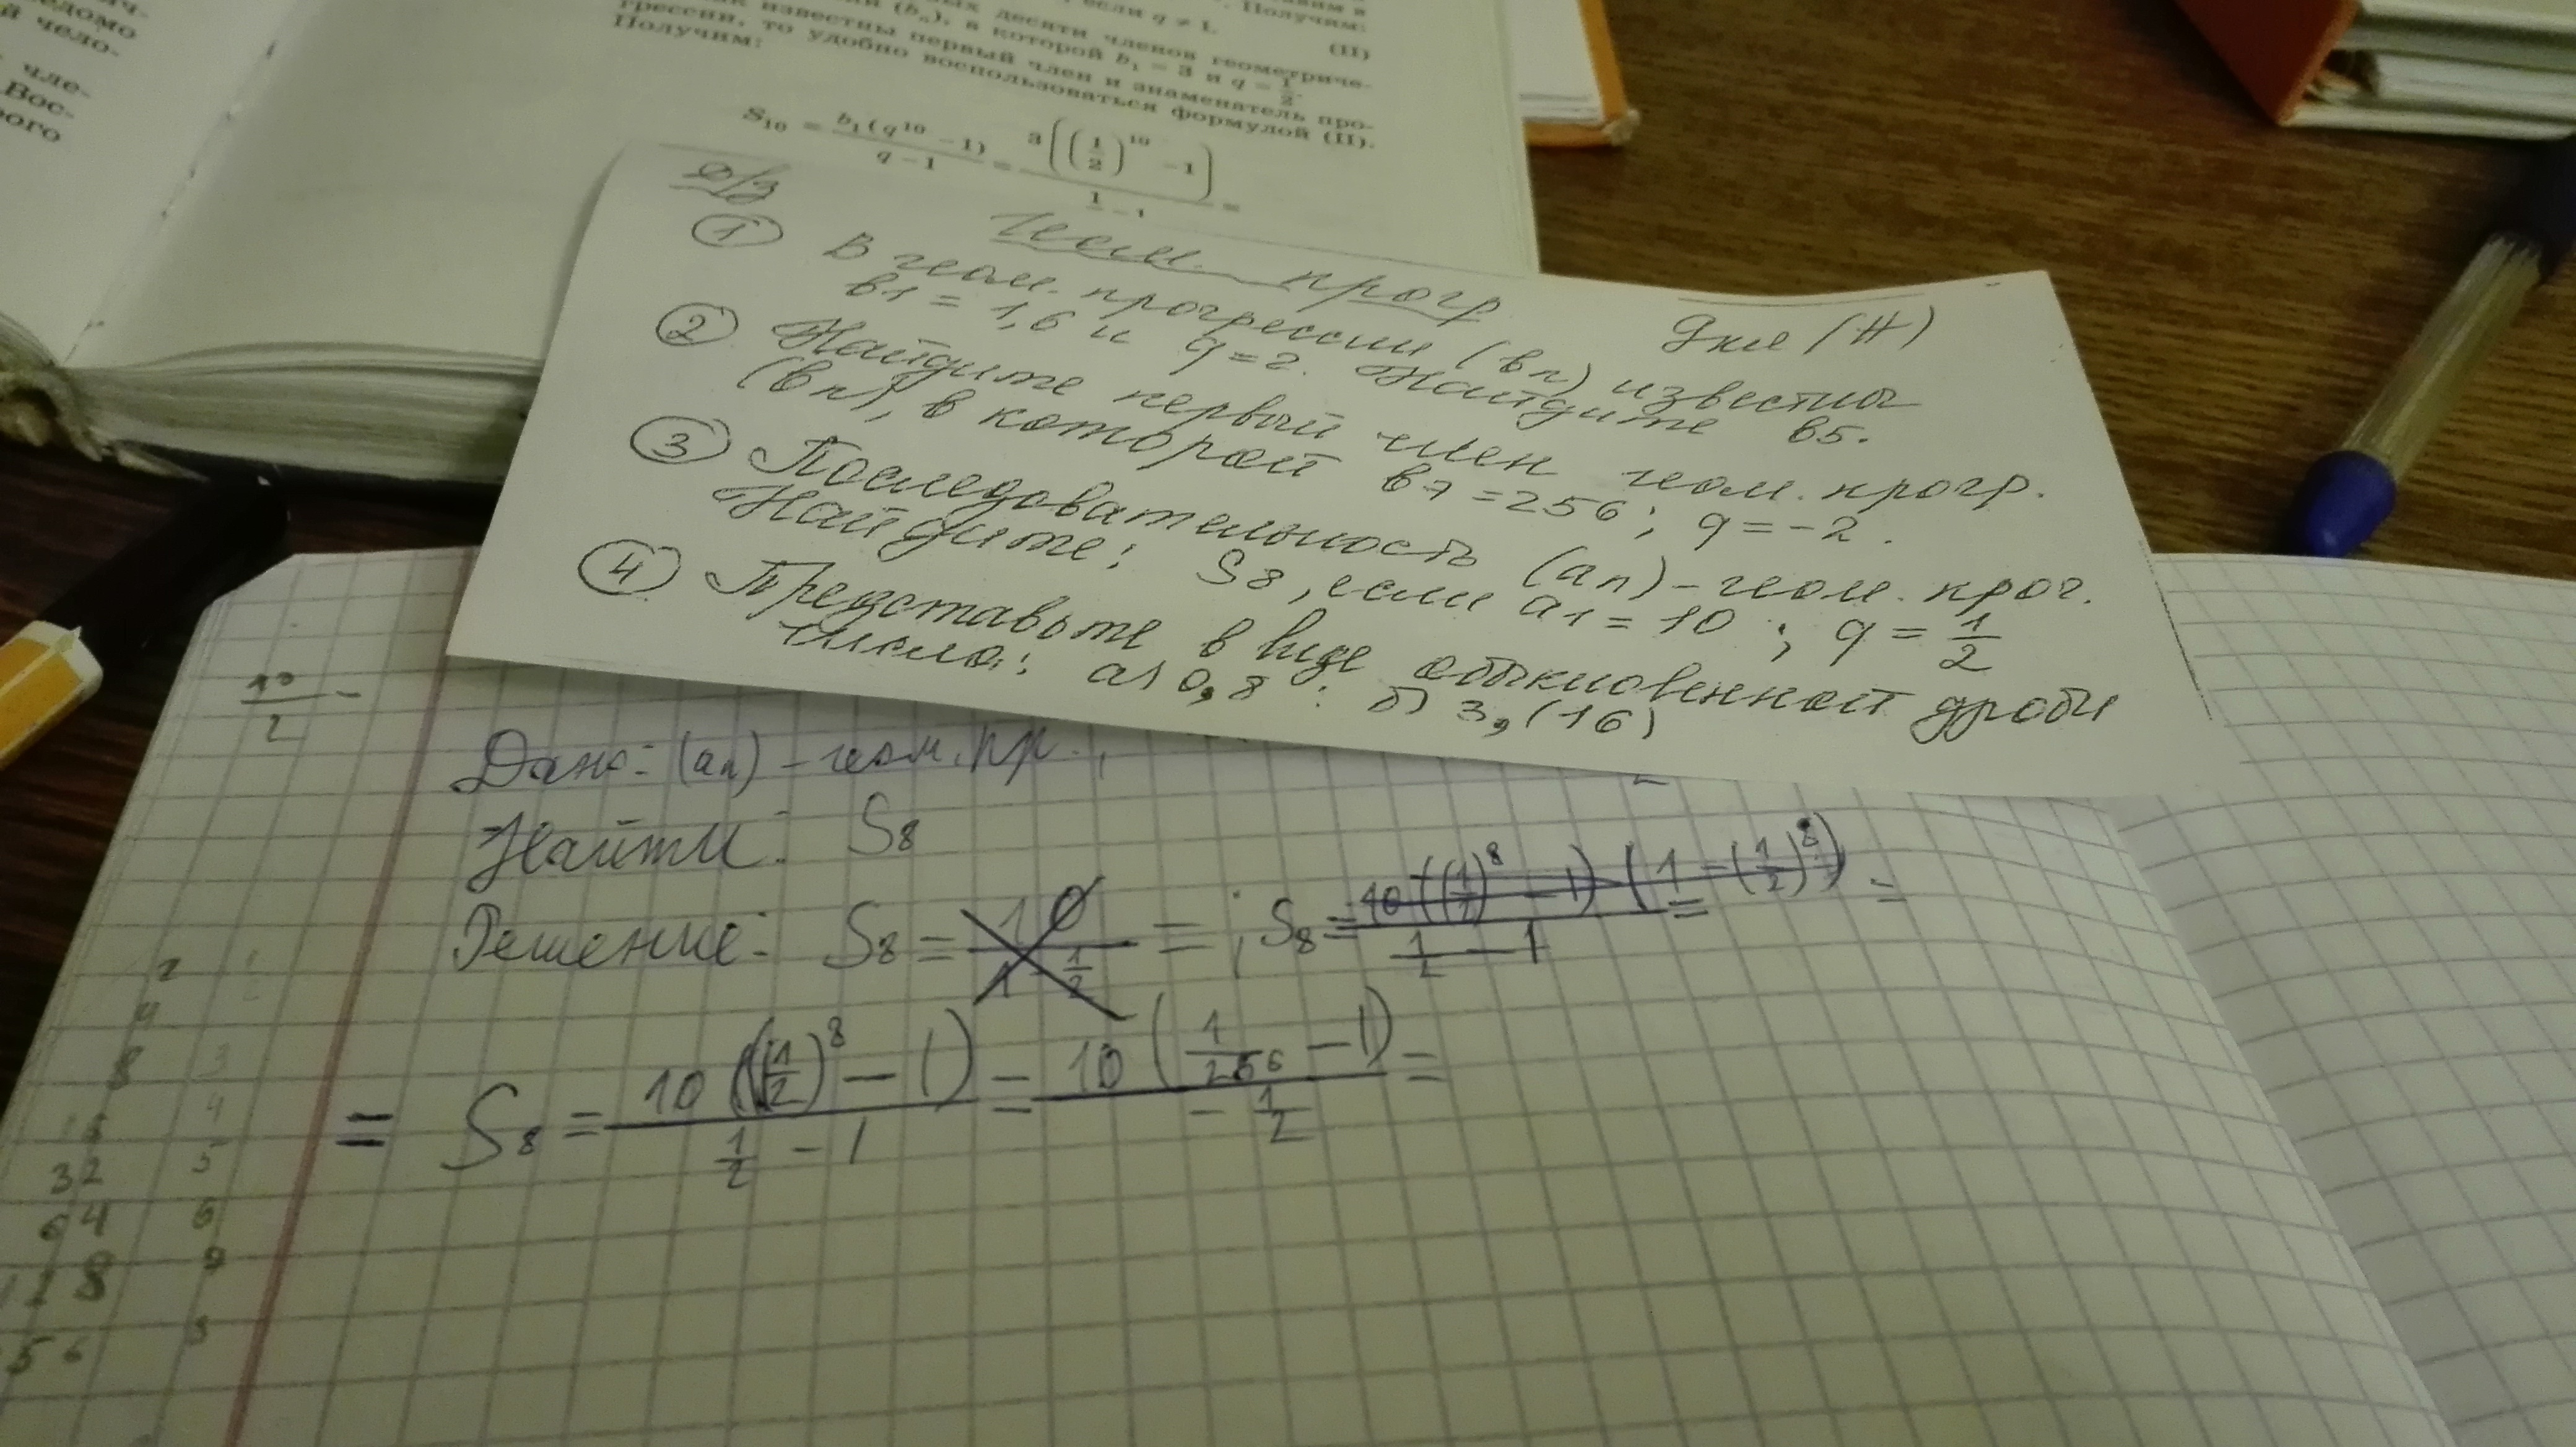 ведомо
чело-
чле-
Вос-
рого
если q ≠ 1. Получим:
(II)
десяти членов геометриче-
(bₙ), в которой b₁ = 3 и q = 1/2.
известны первый член и знаменатель про-
грессии, то удобно воспользоваться формулой (II).
Получим:
S₁₀ = b₁(q¹⁰ - 1) / q - 1 = 3((1/2)¹⁰ - 1) / 1 - 1 =
Д/З
Геом. прогр
Дпе (Н)
① В геом. прогрессии (вn) известны
в1 = 1,6 и q=2. Найдите в5.
② Найдите первый член геом. прогр.
(вn), в которой в7 = 256; q = -2.
③ Последовательность (an) - геом. прог.
Найдите: S8, если a1 = 10; q = 1/2
④ Представьте в виде обыкновенной дроби
числа: а) 0,8 : б) 3,(16)
10/2 -
Дано: (an) - геом. пр.,
Найти: S8
Решение: S8 = 10 / 1 - 1/2 = ; S8 = 10((1/2)⁸ - 1) (1 - (1/2)⁸) / 1/2 - 1 =
= S8 = 10((1/2)⁸ - 1) / 1/2 - 1 = 10(1/256 - 1) / - 1/2 =
2 1
4 2
8 3
16 4
32 5
64 6
128
56